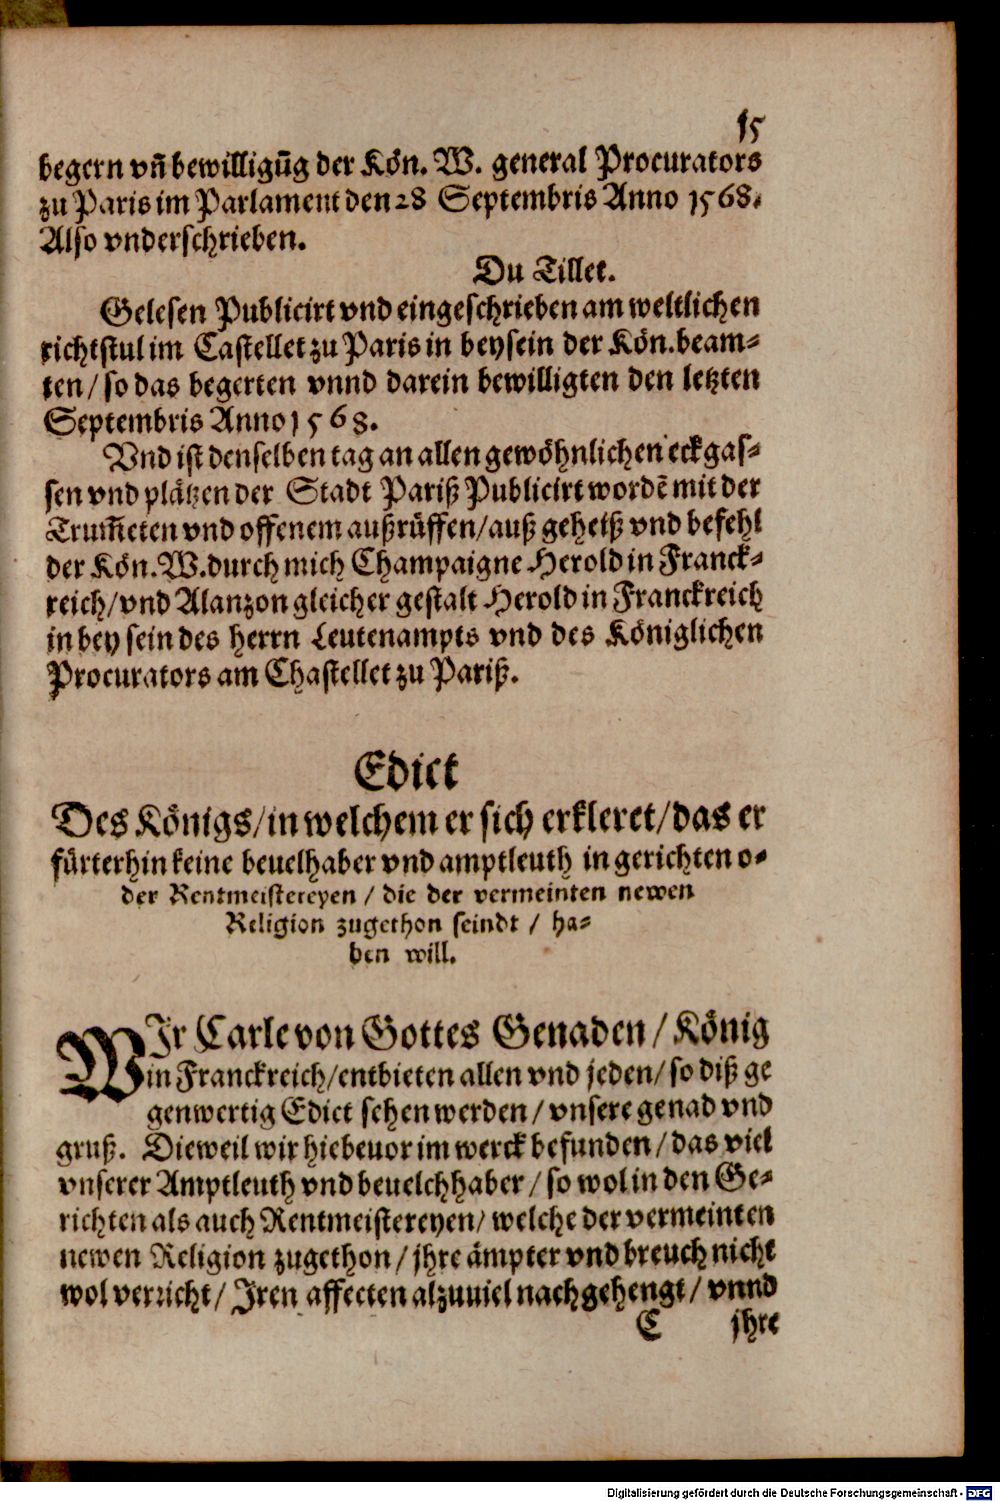 15
begern vñ bewilligūg der Kön. W. general Procurators
zu Paris im Parlament den 28 Septembris Anno 1568.
Also vnderschrieben.
Du Tillet.
Gelesen Publicirt vnd eingeschrieben am weltlichen
richtstul im Castellet zu Paris in beysein der Kön. beam-
ten / so das begerten vnnd darein bewilligten den letzten
Septembris Anno 1568.
Vnd ist denselben tag an allen gewöhnlichen eckgas-
sen vnd plätzen der Stadt Pariß Publicirt wordē mit der
Trum̃eten vnd offenem außrüffen/auß geheiß vnd befehl
der Kön. W. durch mich Champaigne Herold in Franck-
reich/vnd Alanzon gleicher gestalt Herold in Franckreich
in bey sein des herrn Leutenampts vnd des Königlichen
Procurators am Chastellet zu Pariß.
Edict
Des Königs/in welchem er sich erkleret/das er
fürterhin keine beuelhaber vnd amptleuth in gerichten o-
der Rentmeistereyen / die der vermeinten newen
Religion zugethon seindt / ha-
ben will.
WIr Carle von Gottes Genaden / König
in Franckreich/entbieten allen vnd jeden/ so diß ge
genwertig Edict sehen werden / vnsere genad vnd
gruß. Dieweil wir hiebeuor im werck befunden / das viel
vnserer Amptleuth vnd beuelchhaber / so wol in den Ge-
richten als auch Rentmeistereyen/ welche der vermeinten
newen Religion zugethon / jhre ämpter vnd breuch nicht
wol verricht / Iren affecten alzuuiel nachgehengt / vnnd
C jhre
Digitalisierung gefördert durch die Deutsche Forschungsgemeinschaft - DFG